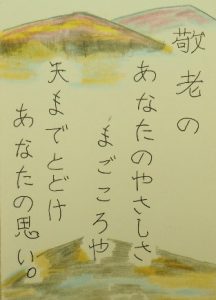 敬老の
あなたのやさしさ
まごころや
天までとどけ
あなたの思い。